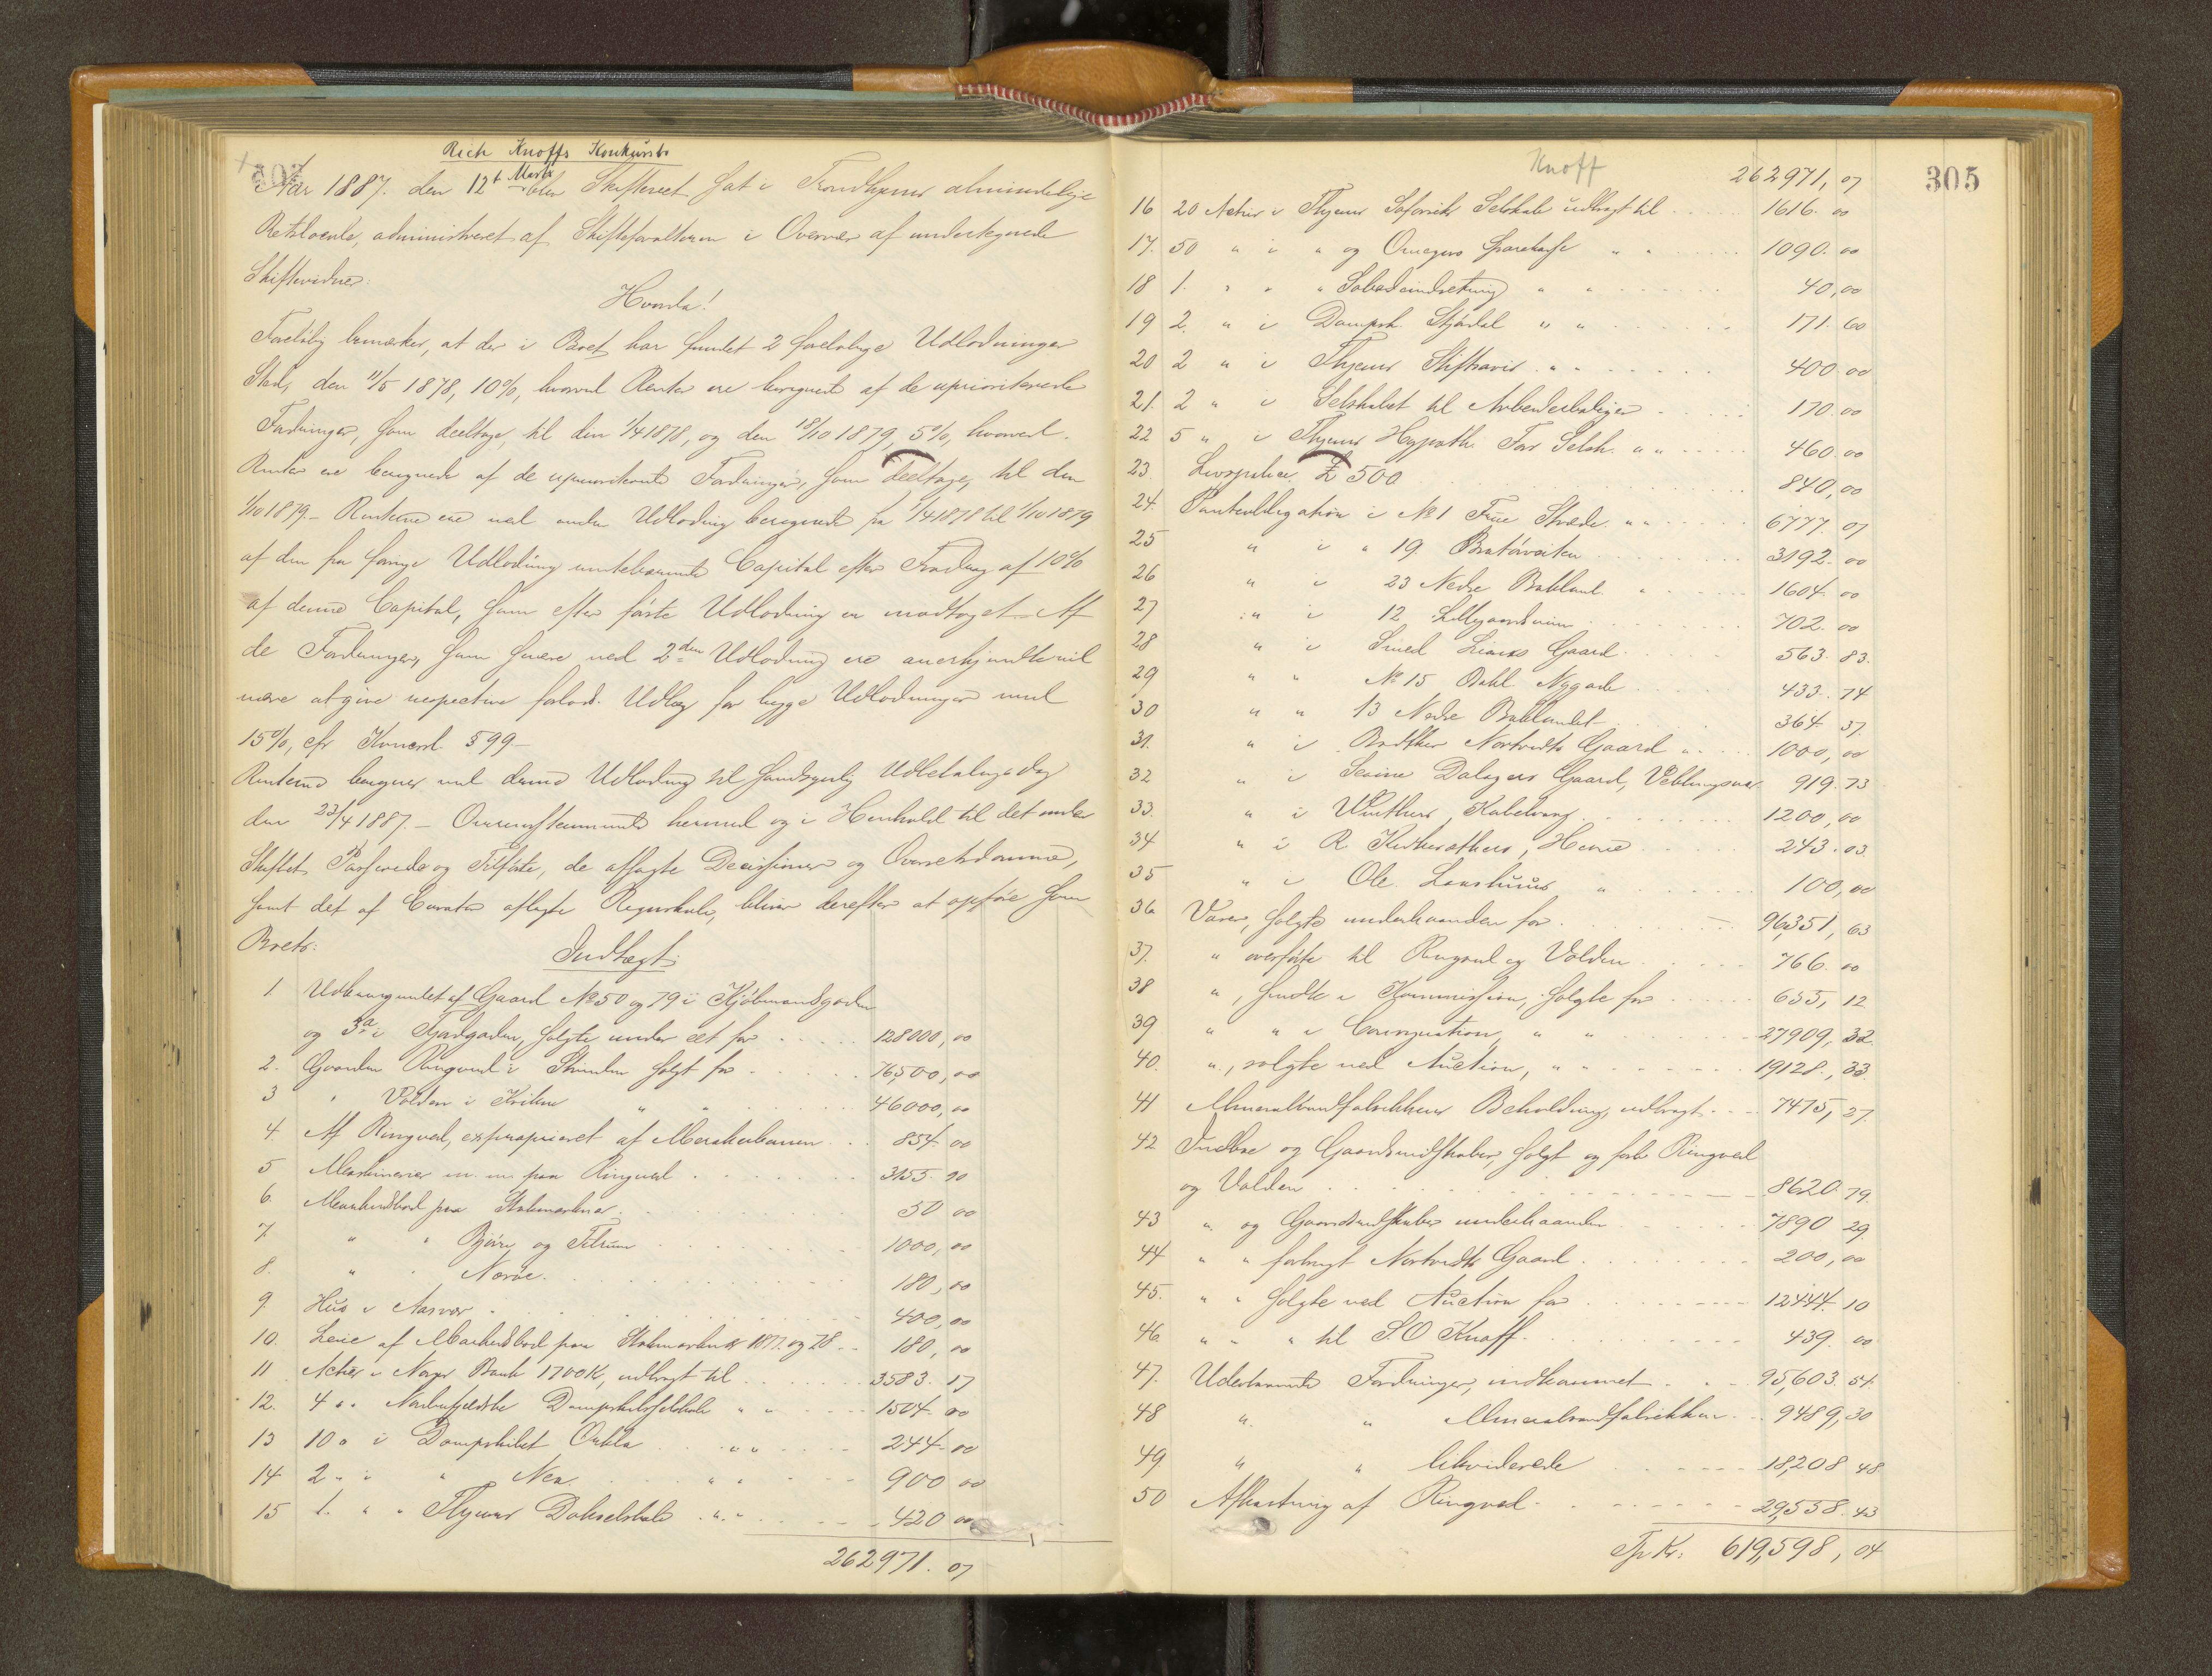 Rich Knoffs Konkursbo
Aar 1887. den 12te Marts blev Skifteret sat i Trondhjems almindelige
Retslocale, administreret af Skifteforvalteren i Overvær af undertegnede
Skiftevidner:
Hvorda!
Foreløbig bemærkes, at der i Boet har fundet 2 foreløbige Udlodninger
Sted, den 11/5 1878, 10%, hvorved Renter ere beregnede af de uprioriterede
Fordringer, som deeltage, til den 1/4 1878, og den 18/10 1879, 5%, hvorved
Renter ere beregnede af de uprioriterede Fordringer, som deeltage, til den
1/10 1879. – Renterne ere ved anden Udlodning beregnede fra 1/4 1878 til 1/10 1879
af den fra forrige Udlodning Capital efter Fradrag af 10%
af denne Capital, som efter første Udlodning er modtaget. Af
de Fordringer, som senere ved 2den Udlodning ere anerkjendte vil
være at give respective forlods Udlæg for begge Udlodninger med
15%, cfr Konkursl. § 99 –
Renterne beregnes ved denne Udlodning til sandsynlig Udbetalingsdag
den 23/4 1887. – Overensstemmende hermed og i Henhold til det under
Skiftet Passerede og Tilførte, de afsagte Decisioner og Overretsdomme,
samt det af Curator aflagte Regnskab, bliver derefter at opføre som
Boets:
Indtægt:
1 Udbringendet af Gaard No 50 og 79 i Kjøbmandsgaden
og 3a i , solgte under eet for 128000,00
2. Gaarden Ringved i Strinden solgt for 76500,00
3 " Volden i " " 46000,00
4. Af Ringved, exproprieret af Merakerbanen 854 00
5 Maskinerier m. m. paa Ringved 3155. 90
6. Markedsbod paa Stokmarknæs 50 00
7. " " Bjørn og Titran 1000,00
8. " " Norøe 180,00
9. Hus i Aasvær 400,00
10. Leie af Markedsbod paa Stokmarknæs 1877 og 78 180,00
11 Actier i Norges Bank 1700 K, udbragt til 3583. 17
12. 4 " " Nordenfjeldske Dampskibsselskab " " 1504 00
13 10 " i Dampskibet Orkla " " 244 00
14 2 " i " Nea " " 900 00
15 1. " " Thjems Dokselskab " " 420 00
262971. 07
Knoff
305
262971, 07
16 20 Actier i Thjems Selskab udbragt til 1616. 00
17. 50 " i " og Omegns Sparekasse " " 1090. 00
18 1. " " " Søbadeindretning " " 40,00
19 2. " i Dampsk. Stjørdal " " 171. 60
20 2 " i Thjems Stiftsavis " " 400. 00
21. 2 " i Selskabet til Arbeiderboliger 170. 00
22 5 " i Thjems Hypoth. For. Selsk. " " 460. 00
23. Livspolice £ 500 840,00
24. Panteobligation i No 1 Frue Stræde " " 6777. 07
25 " i " 19. Bratørveiten 3192. 00
26 " i 23 Nedre Bakland " 1604 00
27 " i 12 702. 00
28 " i Smed Gaard 563. 83.
29 " " No 15 Bakl. Nygade 433. 74
30 " " 13 Nedre Baklandet 364 37.
31. " i Bødtker Nortvedts Gaard " 1000,00
32 " i Gaard, Veblungsnæs 919. 73
33. " i Winthers, Kabelvaag 1200,00
34 " i R. , Hevne 243. 03.
35 " i Ole " 100,00
36 Varer, solgte underhaanden for 96,351, 63
37. " overførte til Ringved og Volden 766. 00
38 ", sendte i Kommission, solgte for 655, 12
39 " " i Consignation, " " 27909, 32.
40. ", solgte ved Auction, " 19128., 33.
41 Mineralvandfabrikkens Beholdning, udbragt 7475, 27.
42 Indboe og Gaardsredskaber, solgt og forb. Ringved
og Volden 8620. 79.
43 " og Gaardsredskaber underhaanden 7890 29.
44 " " forbragt Nortvedts Gaard 200,00
45. " " solgte ved Auction for 12444. 10
46. " " " til S. O Knoff 439. 00
47. Udestaaende Fordringer, indkommet 95,603. 54.
48 " " Mineralvandfabrikken 9489,30
49 " " likviderede 18,208 48
50 Afkastning af Ringved 29,558. 43
Tp Kr: 619,598, 04